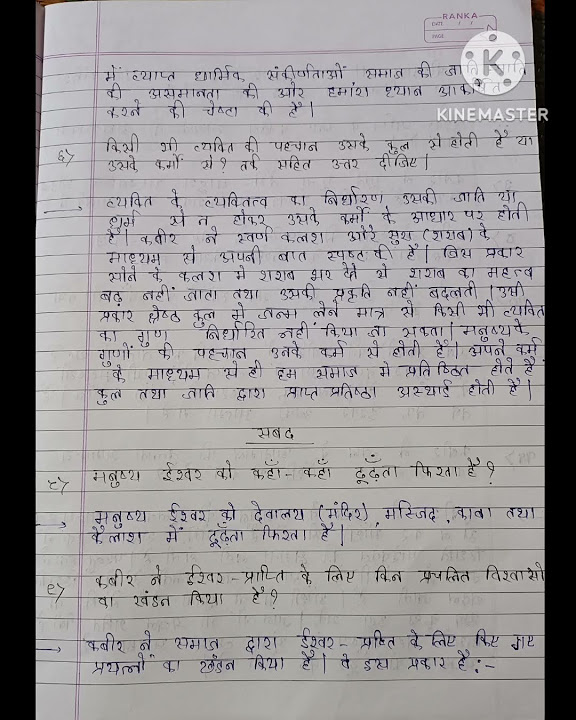 RANKA
DATE / /
PAGE
KINEMASTER
में व्याप्त धार्मिक संकीर्णताओं समाज की जाति
की असमानता की और हमारा ध्यान
करने की चेष्टा की है।
६> किसी भी व्यक्ति की पहचान उसके कुल से होती है या
उसके कर्मों से? तर्क सहित उत्तर दीजिए।
→ व्यक्ति के व्यक्तित्व का निर्धारण उसकी जाति या
धर्म से न होकर उसके कर्मों के आधार पर होती
है। कबीर ने स्वर्ण कलश और सुरा (शराब) के
माध्यम से अपनी बात स्पष्ट की है। जिस प्रकार
सोने के कलश में शराब भर देने से शराब का महत्व
बढ़ नहीं जाता तथा उसकी प्रकृति नहीं बदलती। उसी
प्रकार श्रेष्ठ कुल में जन्म लेने मात्र से किसी भी व्यक्ति
का गुण निर्धारित नहीं किया जा सकता। मनुष्य के
गुणों की पहचान उनके कर्म से होती है। अपने कर्म
के माध्यम से ही हम समाज मे प्रतिष्ठित होते है
कुल तथा जाति द्वारा प्राप्त प्रतिष्ठा अस्थाई होती है।
सबद
८> मनुष्य ईश्वर को कहाँ-कहाँ ढूढ़ँता फिरता है?
→ मनुष्य ईश्वर को देवालय (मंदिर), मस्जिद, काबा तथा
कैलाश में ढूढ़ँता फिरता है।
९> कबीर ने ईश्वर-प्राप्ति के लिए किन प्रचलित विश्वासो
का खंडन किया है?
→ कबीर ने समाज द्वारा ईश्वर-प्राप्ति के लिए किए गए
प्रयत्नों का खंडन किया है। वे इस प्रकार है:-